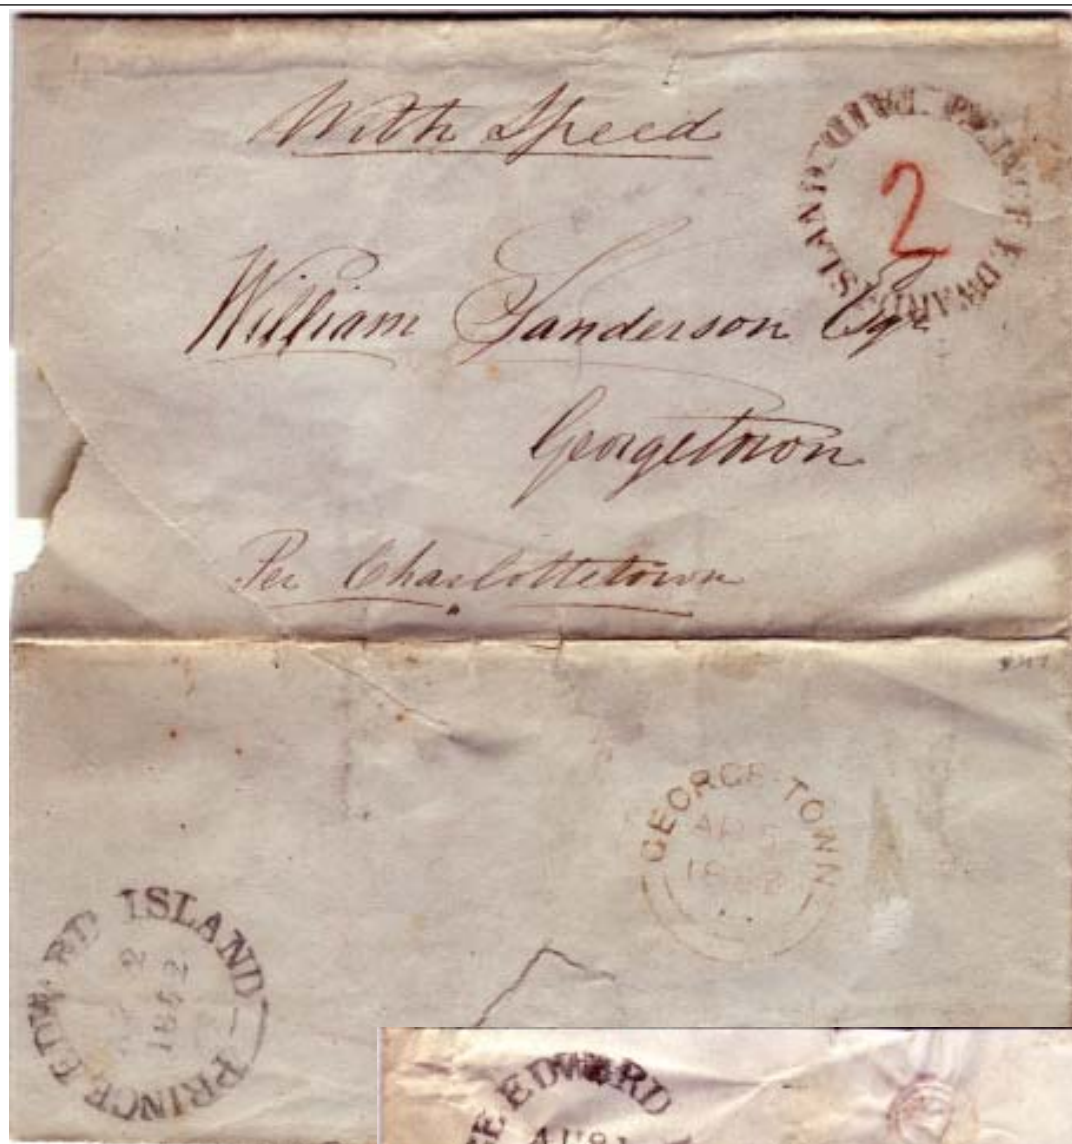 With Speed
PRINCE EDWARD ISLAND
2
William Sanderson Esqr
Georgetown
Per Charlottetown
GEORGE-TOWN
AP 5
PRINCE EDWARD ISLAND
2
1852
EDWARD